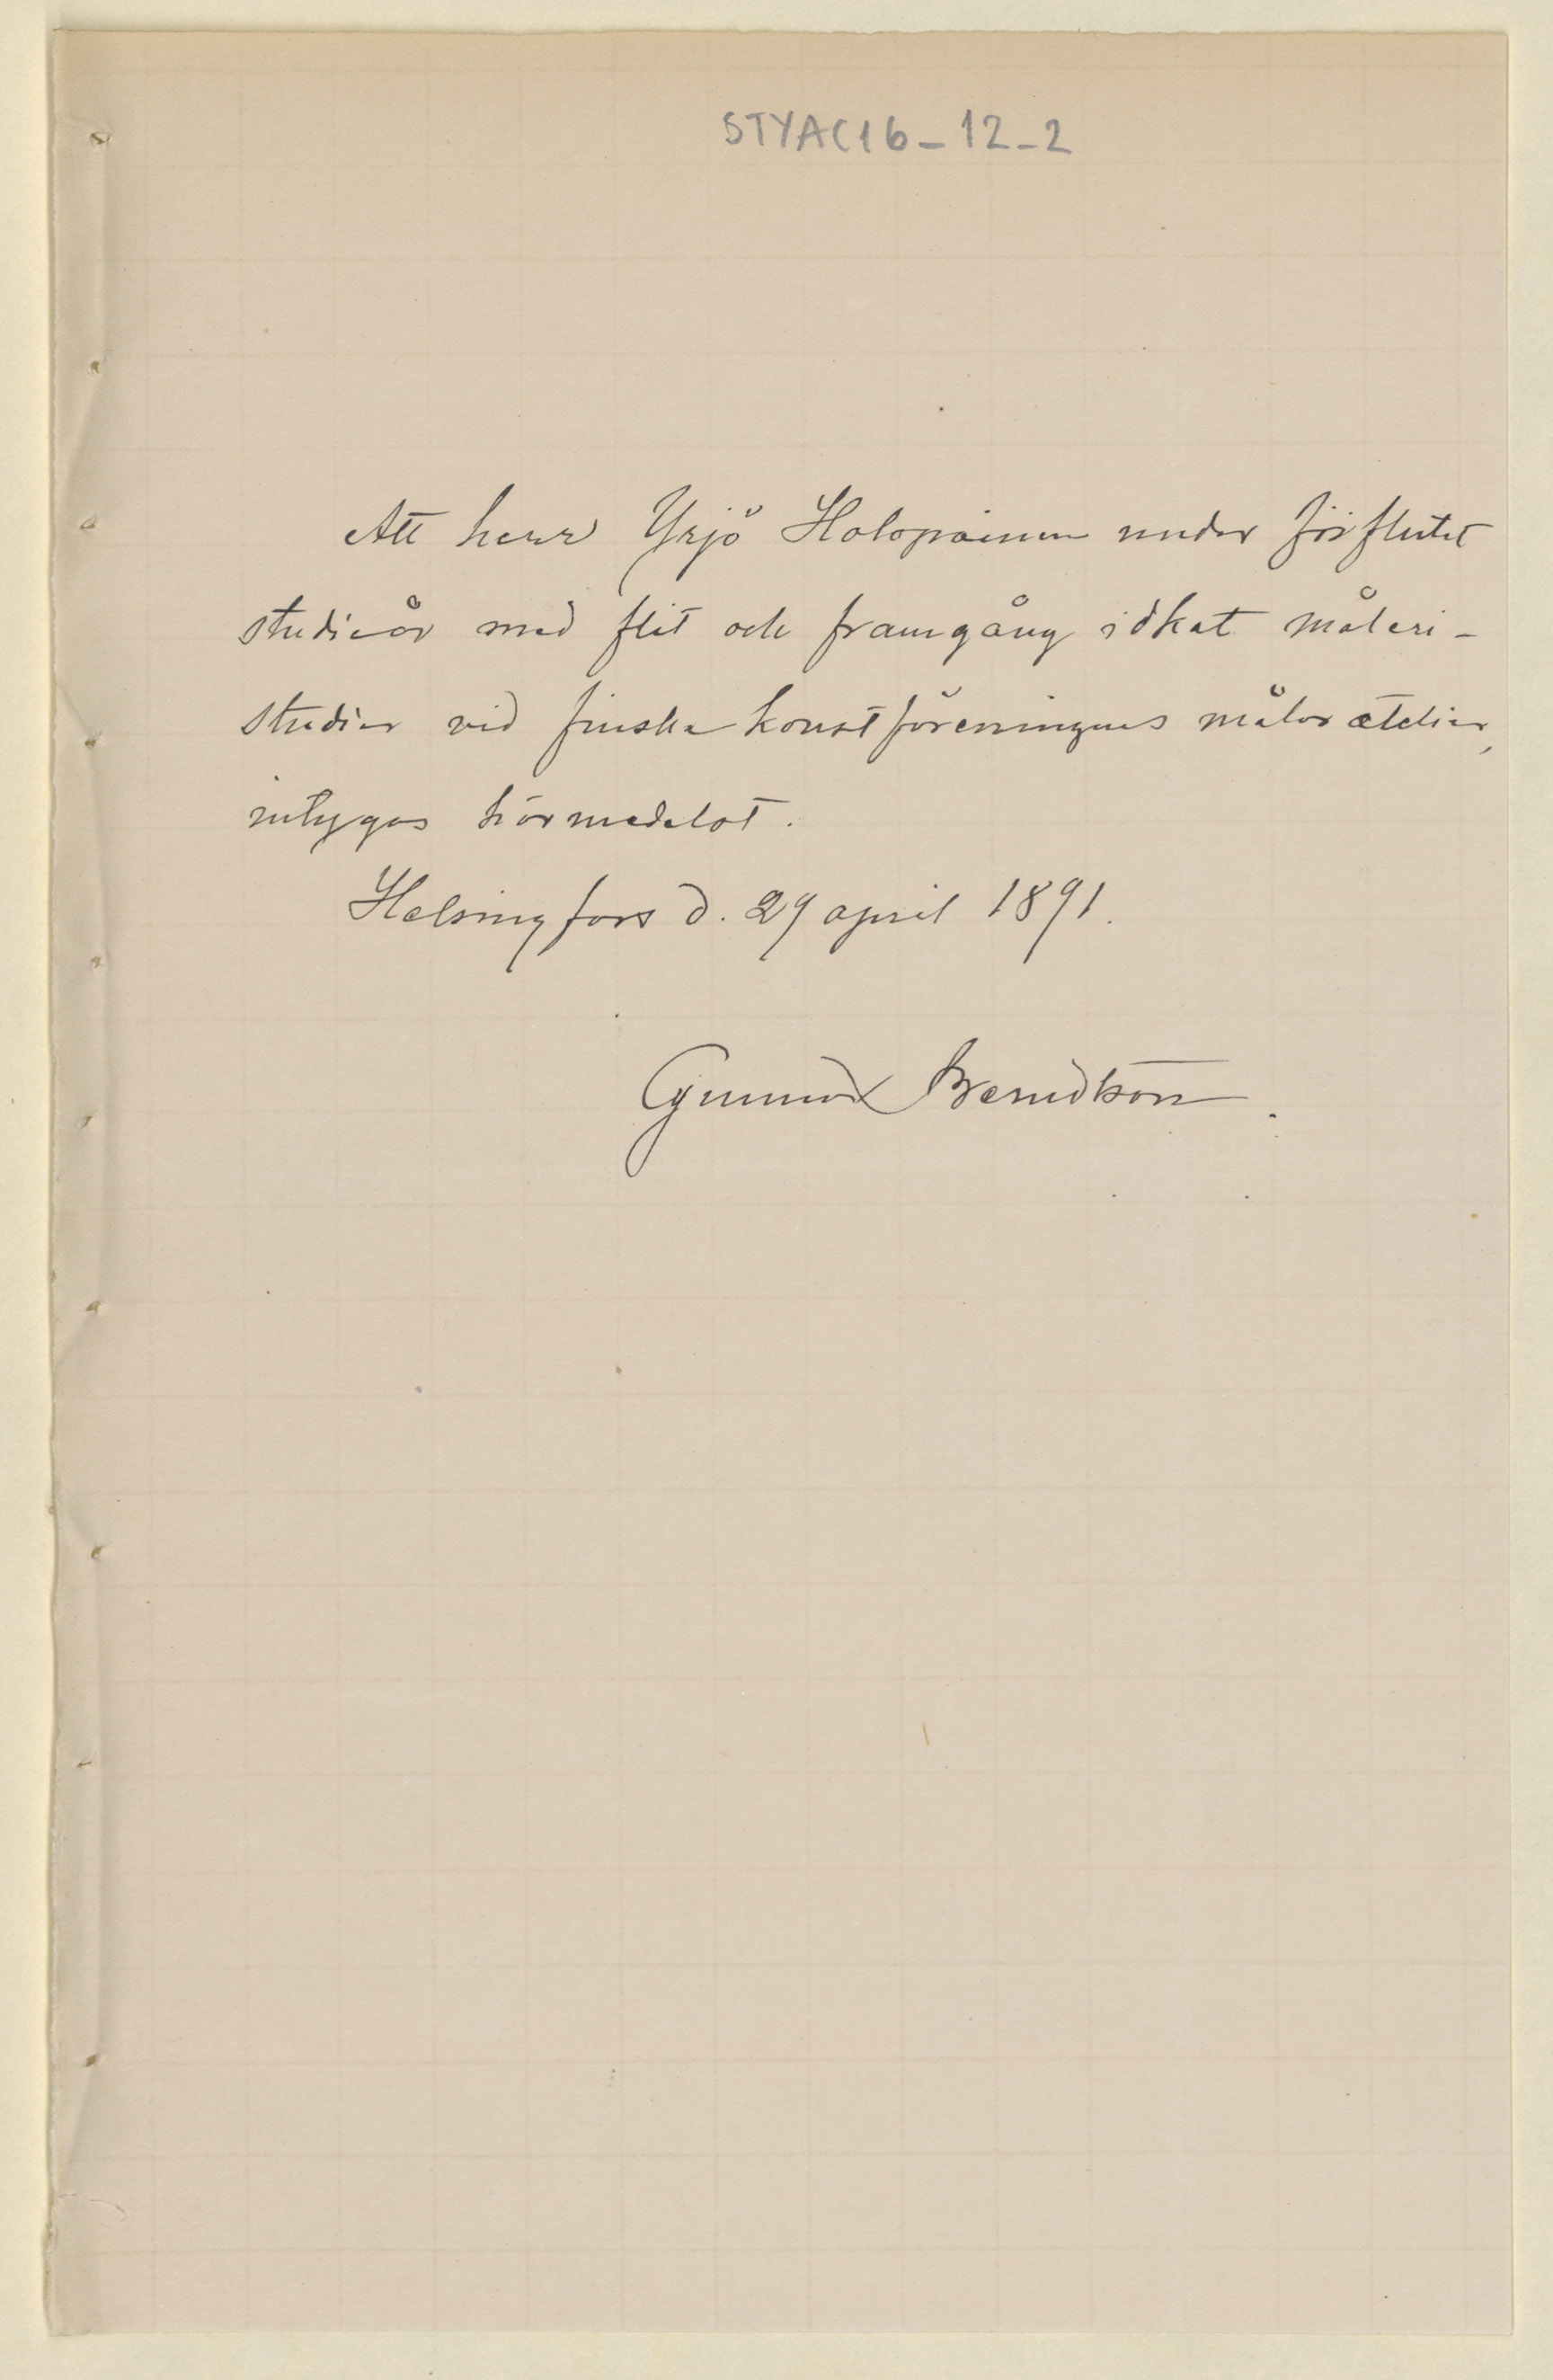 STYAC16-12-2
Att herr Yrjö Holopainen under förflutet
studieår med flit och framgång idkat måleri-
studier vid finska konstföreningens målarateliér,
intygas härmedelst.
Helsingfors d. 29 april 1891.
Gunnar Berndtson.